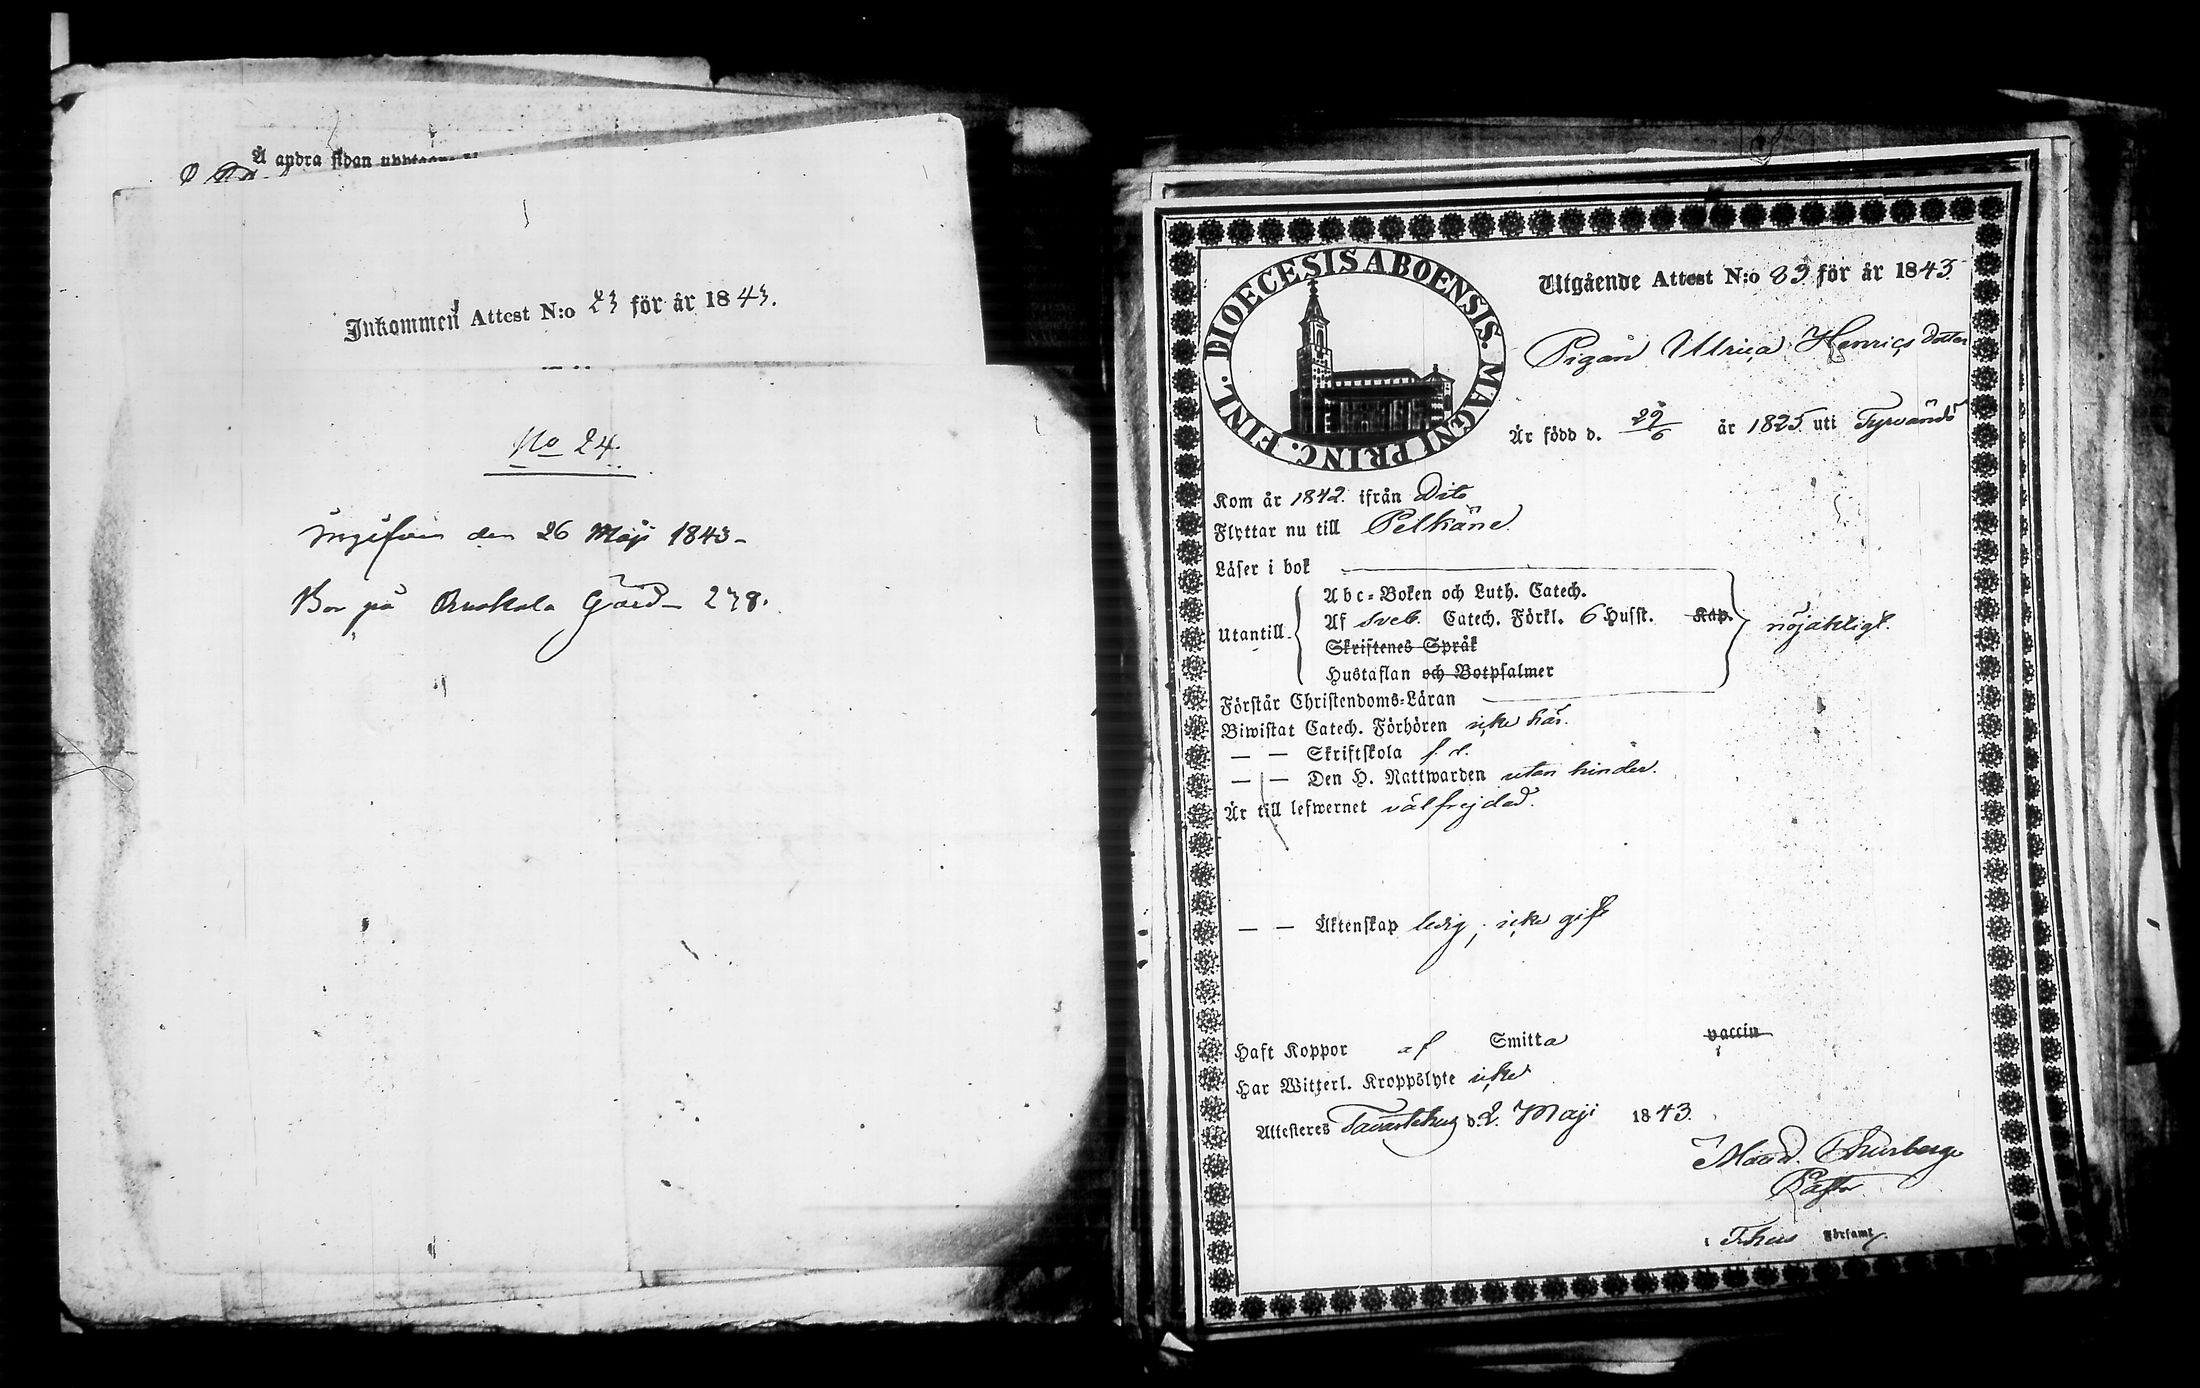 Å andra sidan
Inkommen Attest N:o 23 för år 1843.
No 24.
den 26 Maji 1843 –
Bor på Gård – 278.
DIOECESIS ABOENSIS. MAGNI PRINC. FINL.
Utgående Attest N:o 83 för år 1843
Pigan Ulrica Henrics dotter
Är född d. 29/6 år 1825 uti Tyrvändö
Kom år 1842 ifrån Dito
Flyttar nu till Pelkäne
Läser i bok
Utantill
Abc-Boken och Luth. Catech.
Af Sveb. Catech. Förkl. 6 Husst. Kap.
nöjaktigt.
Skriftenes Språk
Hustaflan och Botpsalmer
Förstår Christendoms-Läran
Biwistat Catech. Förhören icke här.
— — Skriftskola f. d.
— — Den H. Nattwarden utan hinder.
Är till lefwernet välfrejdad.
— — Äktenskap ledig, icke gift
Haft Koppor af Smitta vaccin
Har Witterl. Kroppslyte icke
Attesteres Tavastehus d. 2. Maji 1843.
Thurberg
Pastor
i Thus Församl.